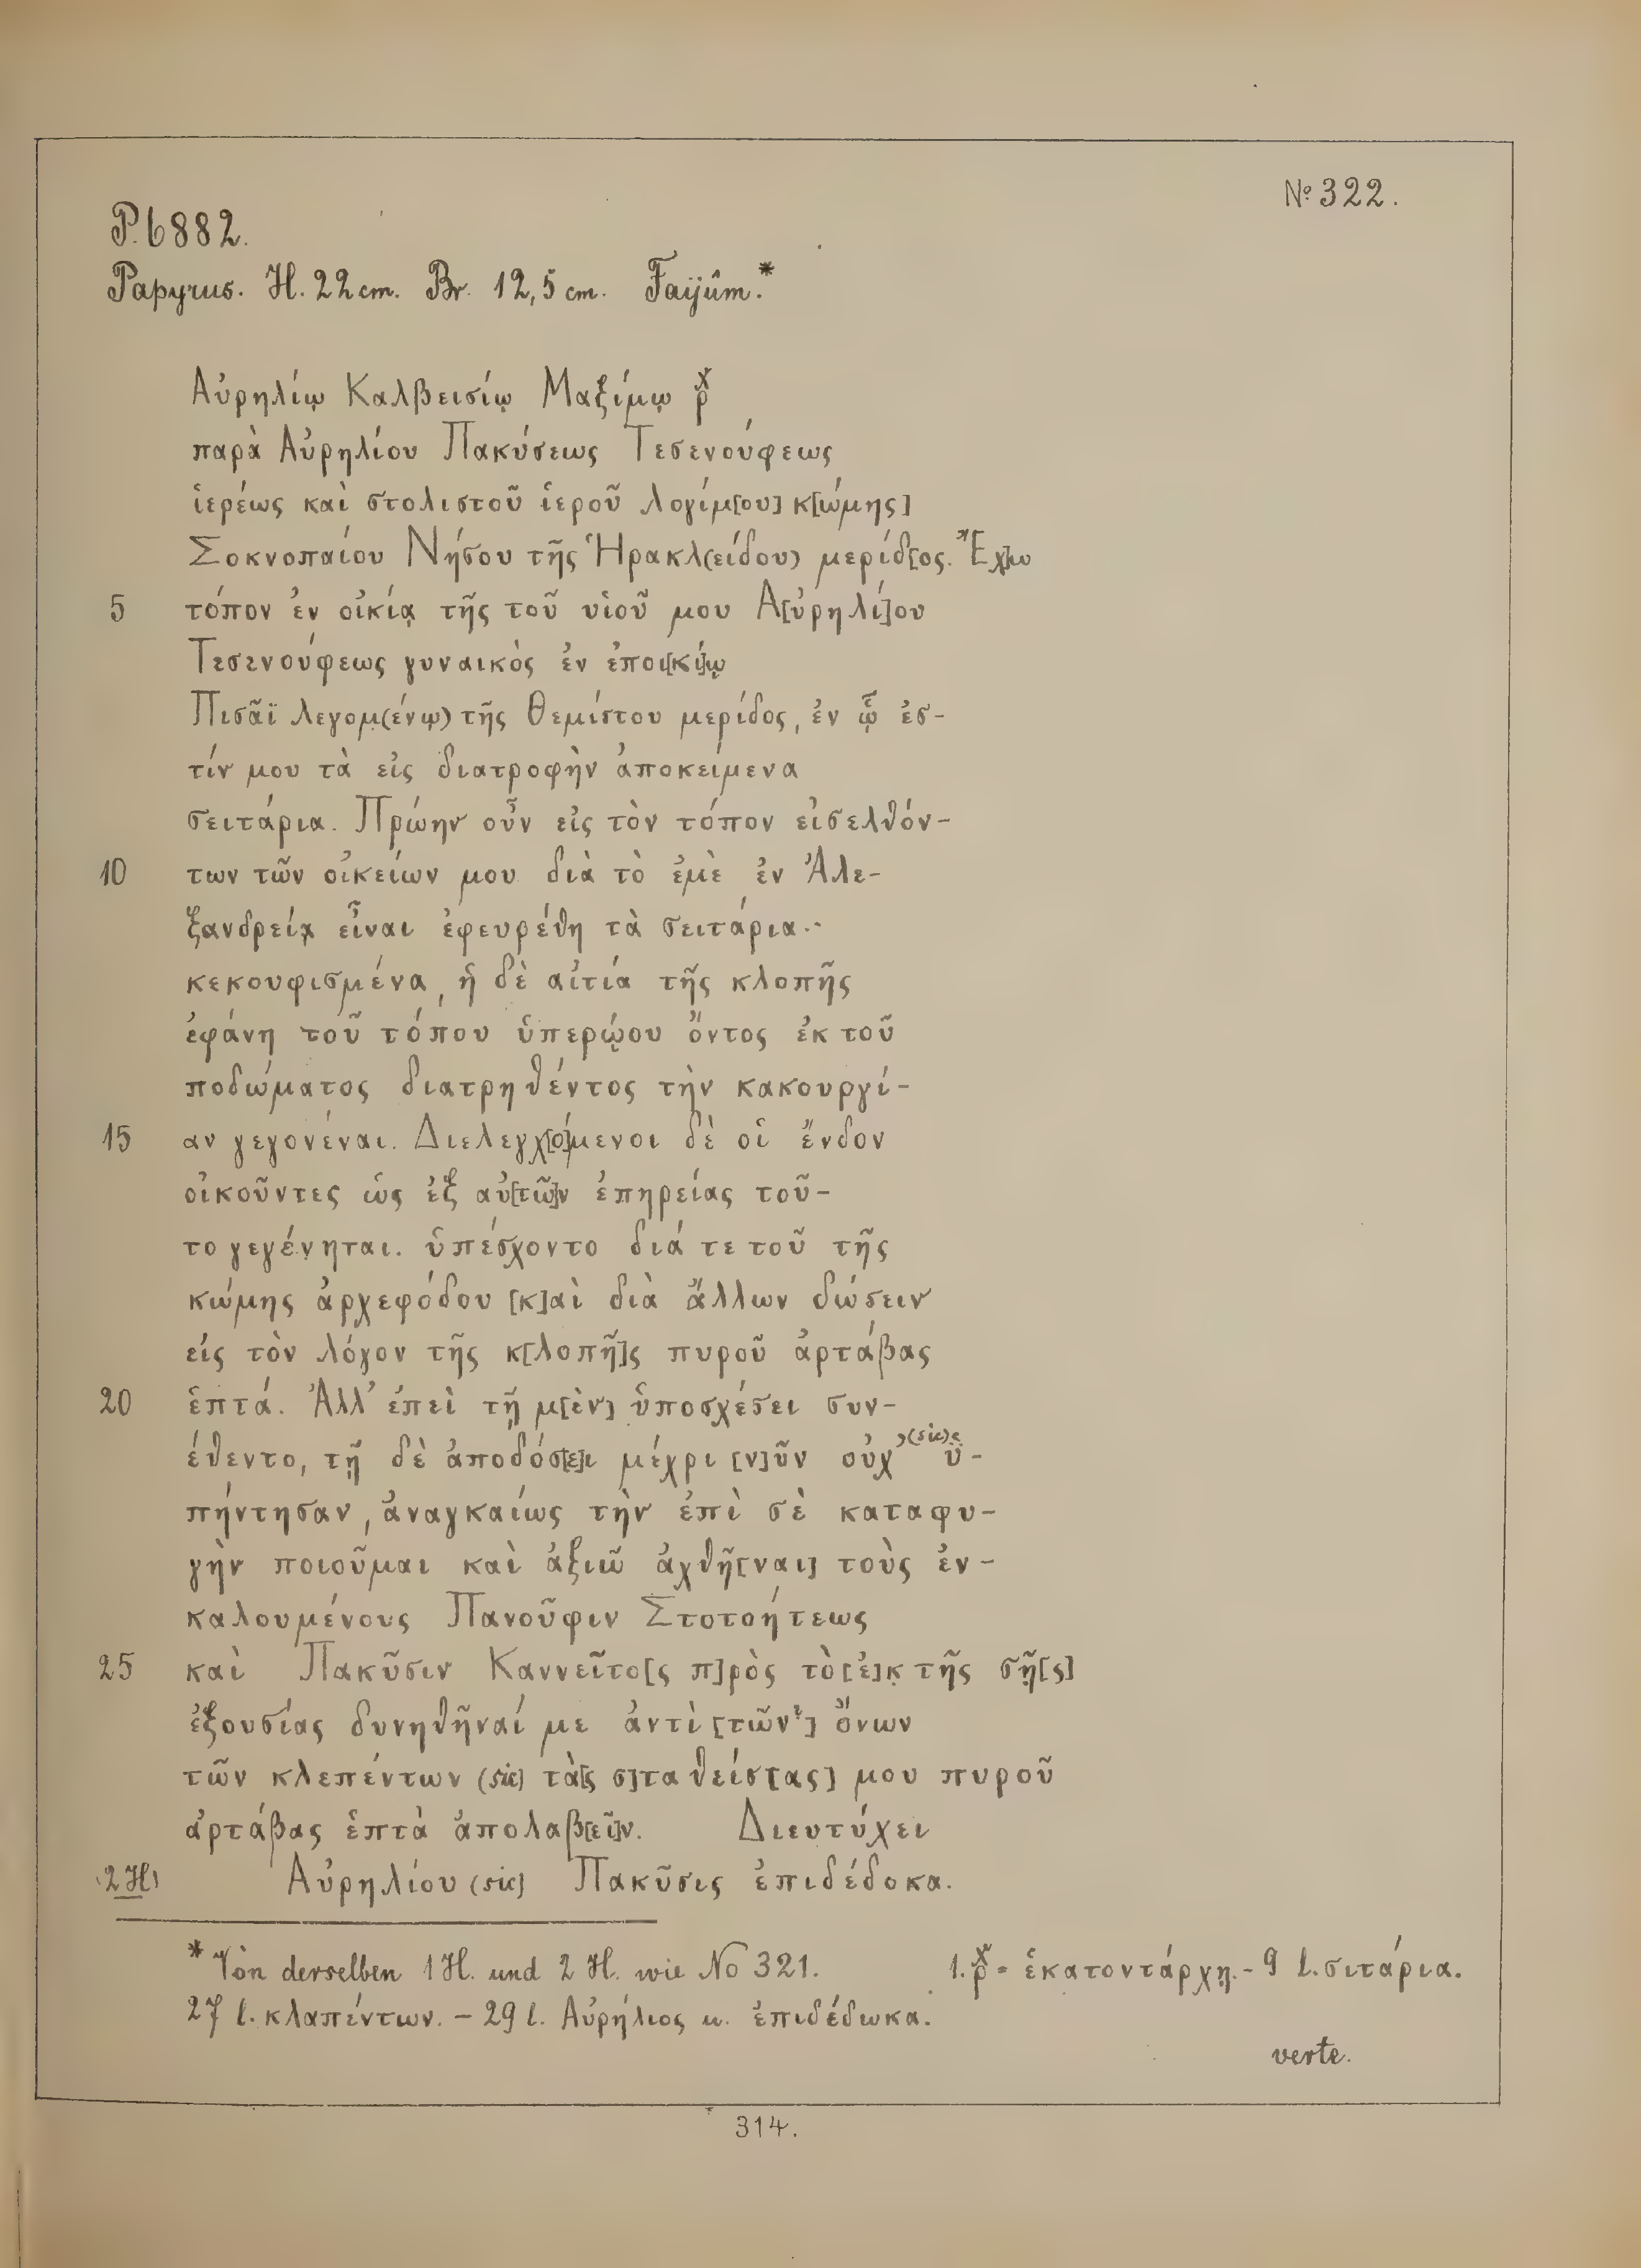 № 322.
P. 6882.
Papyrus. H. 22 cm. Br. 12,5 cm. Faijûm.*
Αὐρηλίῳ Καλβεισίῳ Μαξίμῳ ρ̽
παρὰ Αὐρηλίου Πακύσεως Τεσενούφεως
ἱερέως καὶ στολιστοῦ ἱεροῦ λογίμ[ου] κ[ώμης]
Σοκνοπαίου Νήσου τῆς Ἡρακλ(είδου) μερίδ[ος. Ἔχ]ω
5 τόπον ἐν οἰκίᾳ τῆς τοῦ υἱοῦ μου Α[ὐρηλί]ου
Τεσενούφεως γυναικὸς ἐν ἐποι[κί]ῳ
Πισᾶϊ λεγομ(ένῳ) τῆς Θεμίστου μερίδος, ἐν ᾧ ἐσ-
τίν μου τὰ εἰς διατροφὴν ἀποκείμενα
σειτάρια. Πρώην οὖν εἰς τὸν τόπον εἰσελθόν-
10 των τῶν οἰκείων μου διὰ τὸ ἐμὲ ἐν Ἀλε-
ξανδρείᾳ εἶναι ἐφευρέθη τὰ σειτάρια..
κεκουφισμένα, ἡ δὲ αἰτία τῆς κλοπῆς
ἐφάνη τοῦ τόπου ὑπερῴου ὄντος ἐκ τοῦ
ποδώματος διατρηθέντος τὴν κακουργί-
15 αν γεγονέναι. Διελεγχ[ό]μενοι δὲ οἱ ἔνδον
οἰκοῦντες ὡς ἐξ αὐ[τῶ]ν ἐπηρείας τοῦ-
το γεγένηται. ὑπέσχοντο διά τε τοῦ τῆς
κώμης ἀρχεφόδου [κ]αὶ διὰ ἄλλων δώσειν
εἰς τὸν λόγον τῆς κ[λοπῆ]ς πυροῦ ἀρτάβας
20 ἑπτά. Ἀλλ' ἐπεὶ τῇ μ[ὲν] ὑποσχέσει συν-
έθεντο, τῇ δὲ ἀποδόσ[ε]ι μέχρι [ν]ῦν οὐχ' (sic) ὑ̈-
πήντησαν, ἀναγκαίως τὴν ἐπὶ σὲ καταφυ-
γὴν ποιοῦμαι καὶ ἀξιῶ ἀχθῆ[ναι] τοὺς ἐν-
καλουμένους Πανοῦφιν Στοτοήτεως
25 καὶ Πακῦσιν Καννεῖτο[ς π]ρὸς τὸ [ἐ]κ̣ τῆς σῆ̣[ς]
ἐξουσίας δυνηθῆναί με ἀντὶ [τῶν?] ὄνων
τῶν κλεπέντων (sic) τὰ[ς σ]ταθείσ[ας] μου πυροῦ
ἀρτάβας ἑπτὰ ἀπολαβ[εῖ]ν. Διευτύχει
(2 H) Αὐρηλίου (sic) Πακῦσις ἐπιδέδοκα.
* Von derselben 1 H. und 2 H. wie No 321. 1. ρ̽ = ἑκατοντάρχῃ. - 9 l. σιτάρια.
27 l. κλαπέντων. - 29 l. Αὐρήλιος u. ἐπιδέδωκα.
verte.
314.